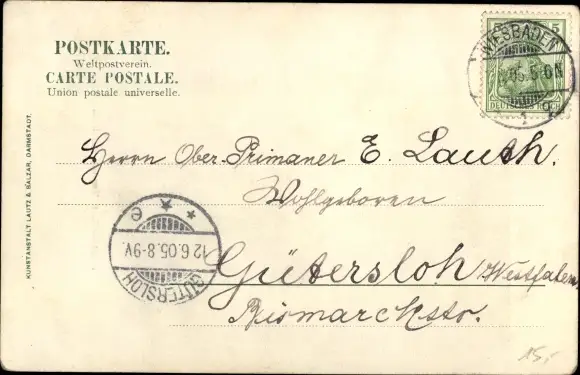 POSTKARTE.
Weltpostverein.
CARTE POSTALE.
Union postale universelle.
5 5
DEUTSCHES REICH
WIESBADEN
05.5-6N
1 g
Herrn Ober-Primaner E. Lauth.
Wohlgeboren
Gütersloh Westfalen
Bismarckstr.
GÜTERSLOH
12.6.05.8-9V.
* e
KUNSTANSTALT LAUTZ & BALZAR, DARMSTADT.
15,-